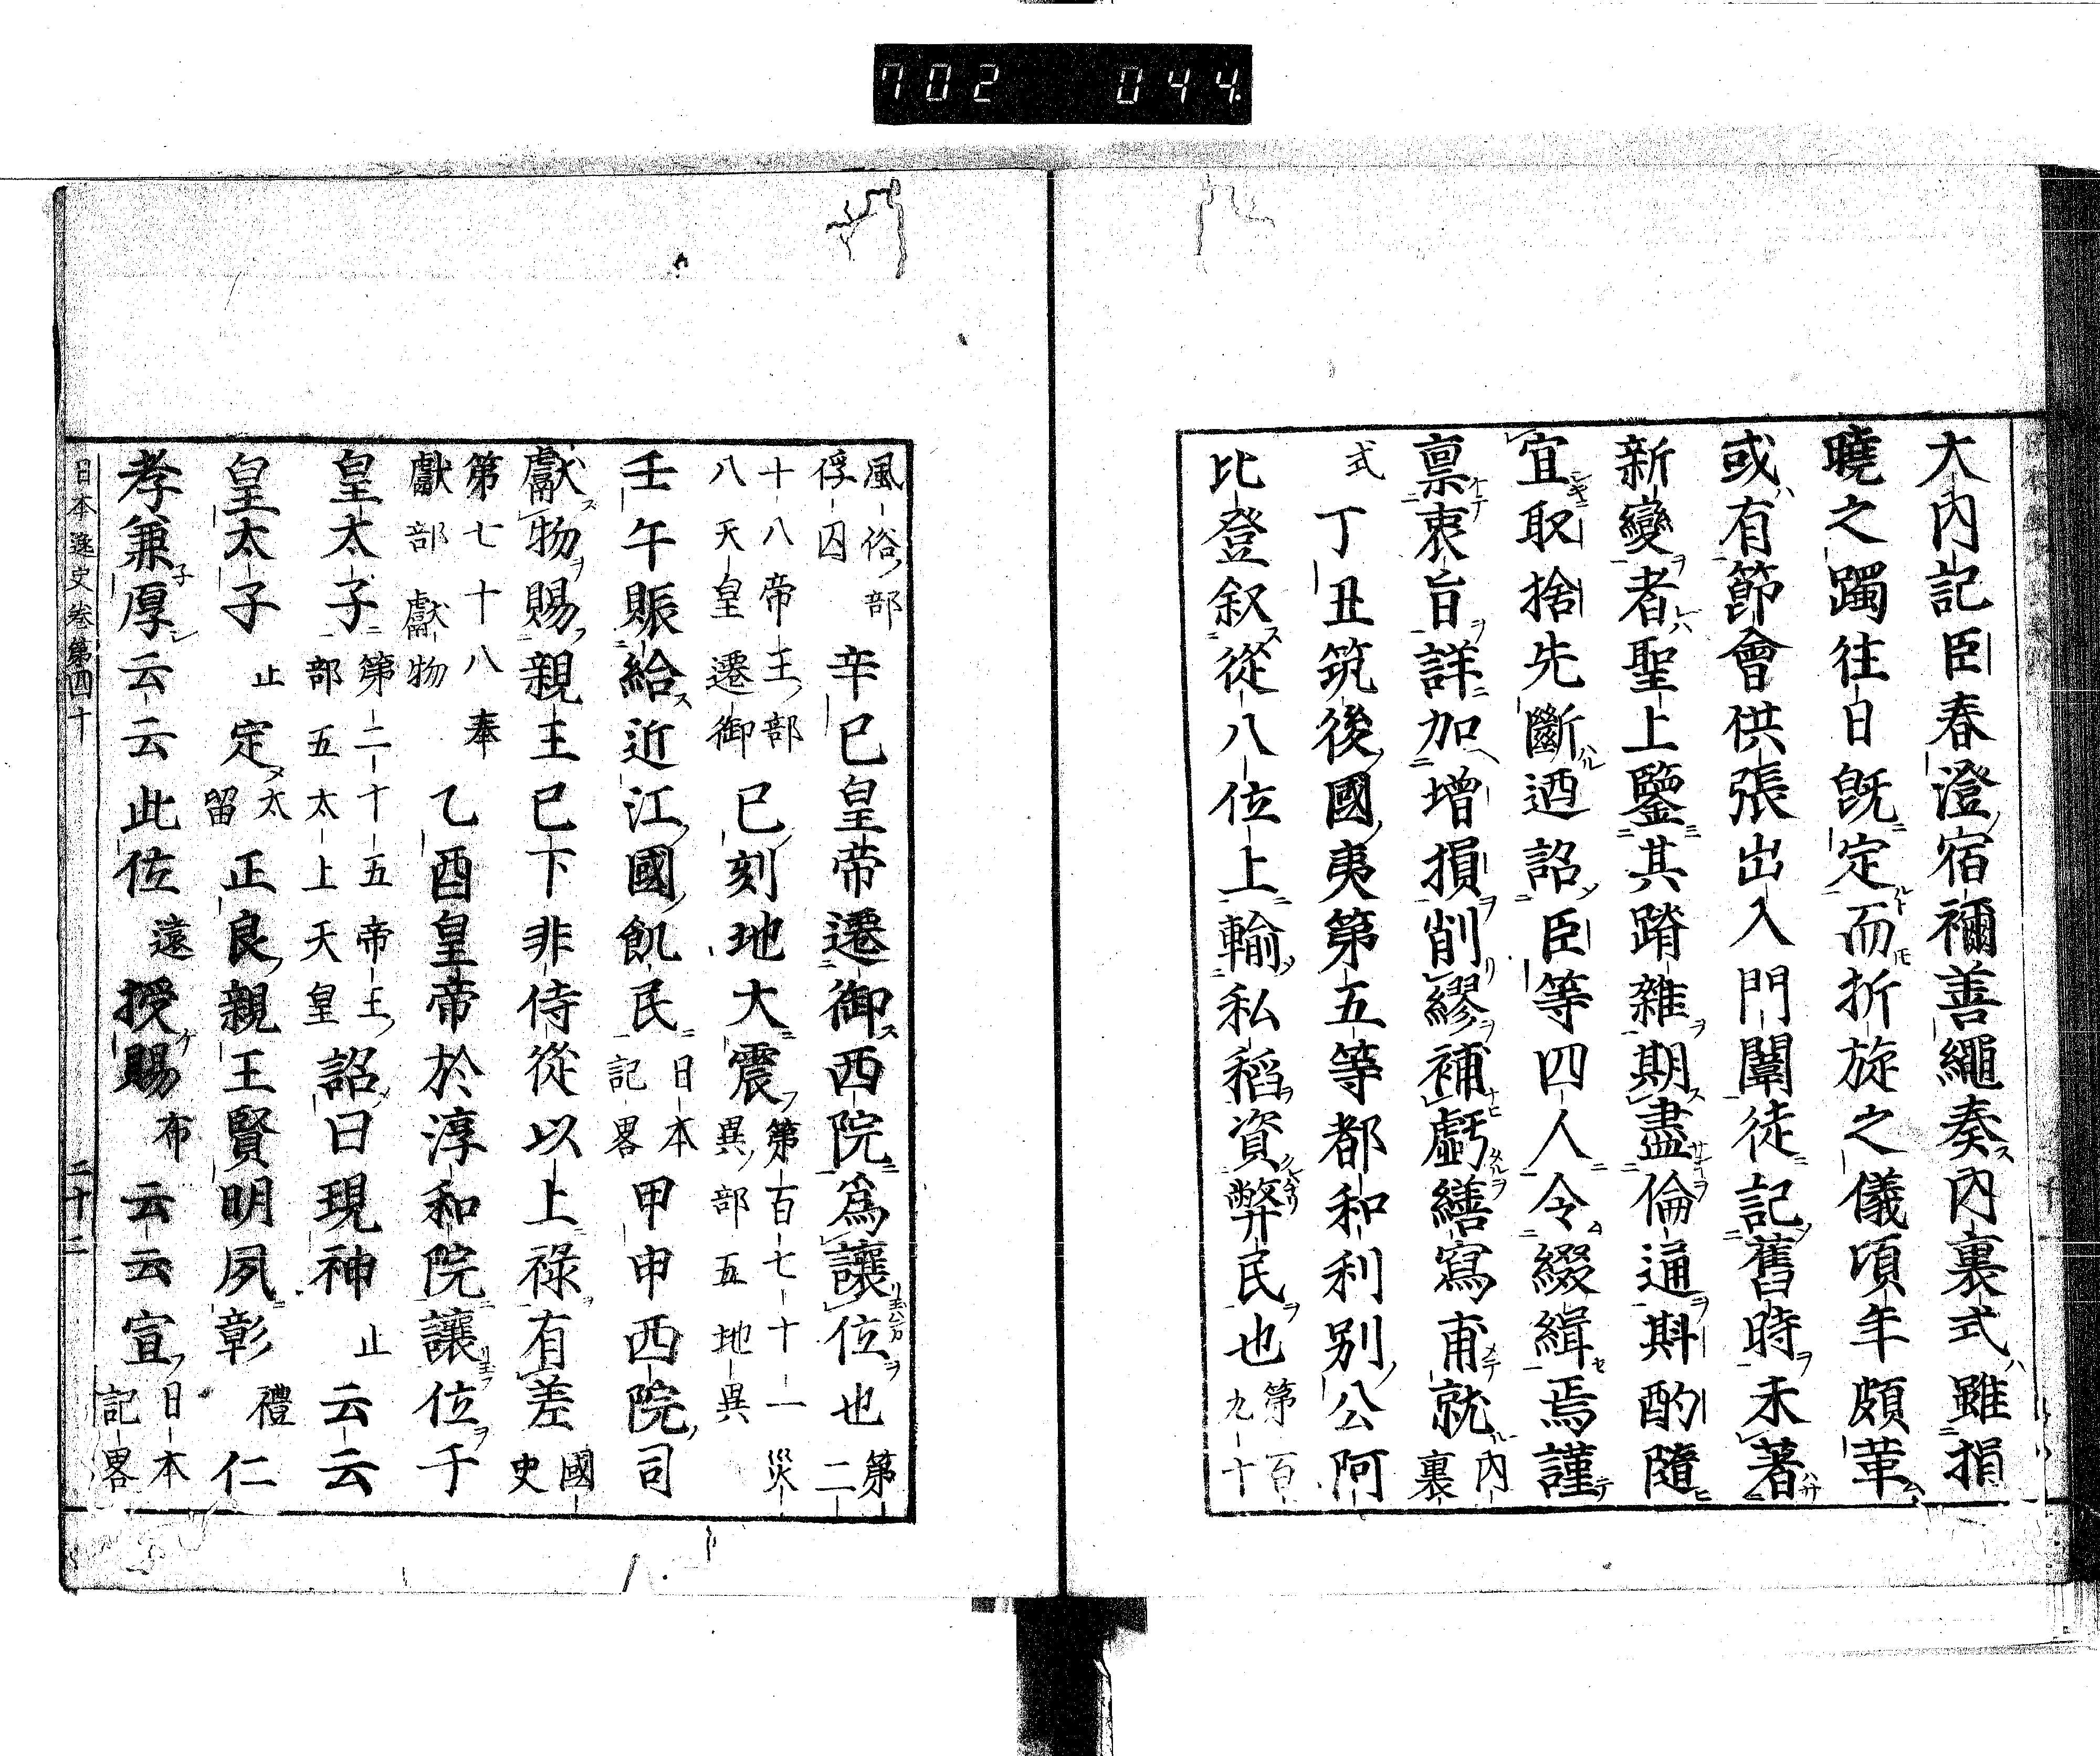 702 044
大内記臣春澄宿禰善繩奏内裏式雖損
曉之躅往日既定而折旋之儀頃年頗革
或有節會供張出入門闈徒記舊時未著
新變者聖上鑒其踳雜期盡倫通斟酌隨
宜取捨先斷迺詔臣等四人令綴緝焉謹
禀衷旨詳加増損削繆補虧繕寫甫就内裏
式丁丑筑後國夷第五等都和利別公阿
比登叙從八位上輸私稻資弊民也第百九十
風俗部俘囚辛巳皇帝遷御西院爲讓位也第二
十八帝王部八天皇遷御巳刻地大震第百七十一災異部五地異
壬午賑給近江國飢民日本記畧甲申西院司
獻物賜親王已下非侍從以上祿有差國史
第七十八奉獻部獻物乙酉皇帝於淳和院讓位于
皇太子第二十五帝王部五太上天皇詔曰現神止云云
皇太子止定太留正良親王賢明夙彰禮仁
孝兼厚云云此位遠授賜布云云宣日本記畧
日本逸史卷第四十 二十二